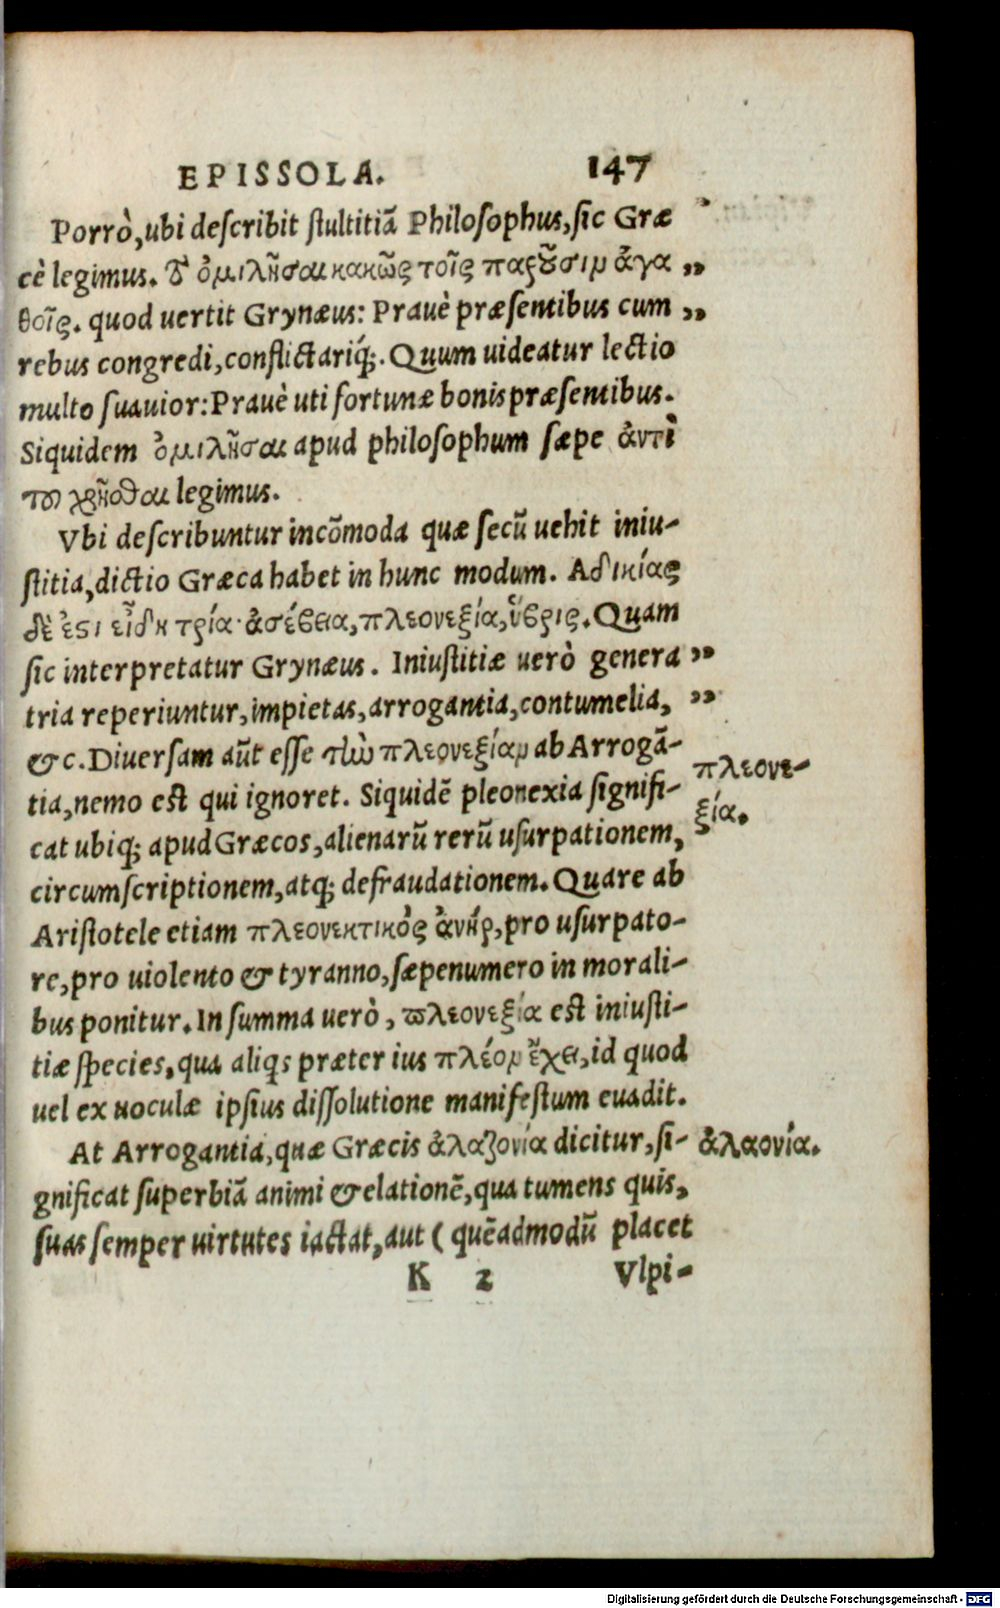 EPISSOLA. 147
Porrò, ubi describit stultitiã Philosophus, sic Græ
cè legimus. ȣ̃ ὁμιλῆσαι κακῶς τοῖς παρȣ̃σιν ἀγα „
θοῖς. quod uertit Grynæus: Prauè præsentibus cum „
rebus congredi, conflictariq́;. Quum uideatur lectio
multo suauior: Prauè uti fortunæ bonis præsentibus.
Siquidem ὁμιλῆσαι apud philosophum sæpe ἀντὶ
τοῦ χρῆσθαι legimus.
Vbi describuntur incõmoda quæ secũ uehit iniu-
stitia, dictio Græca habet in hunc modum. Ἀδικίας
δὲ ἐϛι εἴδη τρία· ἀσέβεια, πλεονεξία, ὕβρις. Quam
sic interpretatur Grynæus. Iniustitiæ uerò genera „
tria reperiuntur, impietas, arrogantia, contumelia, „
&c. Diuersam aũt esse τὴν πλεονεξίαν ab Arrogã-
tia, nemo est qui ignoret. Siquidẽ pleonexia signifi-
πλεονε-
ξία.
cat ubiq; apud Græcos, alienarũ rerũ usurpationem,
circumscriptionem, atq; defraudationem. Quare ab
Aristotele etiam πλεονεκτικὸς ἀνὴρ, pro usurpato-
re, pro uiolento & tyranno, sæpenumero in morali-
bus ponitur. In summa uerò, πλεονεξία est iniusti-
tiæ species, qua aliqs præter ius πλέον ἔχει, id quod
uel ex uoculæ ipsius dissolutione manifestum euadit.
At Arrogantia, quæ Græcis ἀλαζονία dicitur, si-
ἀλαονία.
gnificat superbiã animi & elationẽ, qua tumens quis,
suas semper uirtutes iactat, aut (quẽadmodũ placet
K 2 Vlpi-
Digitalisierung gefördert durch die Deutsche Forschungsgemeinschaft - DFG